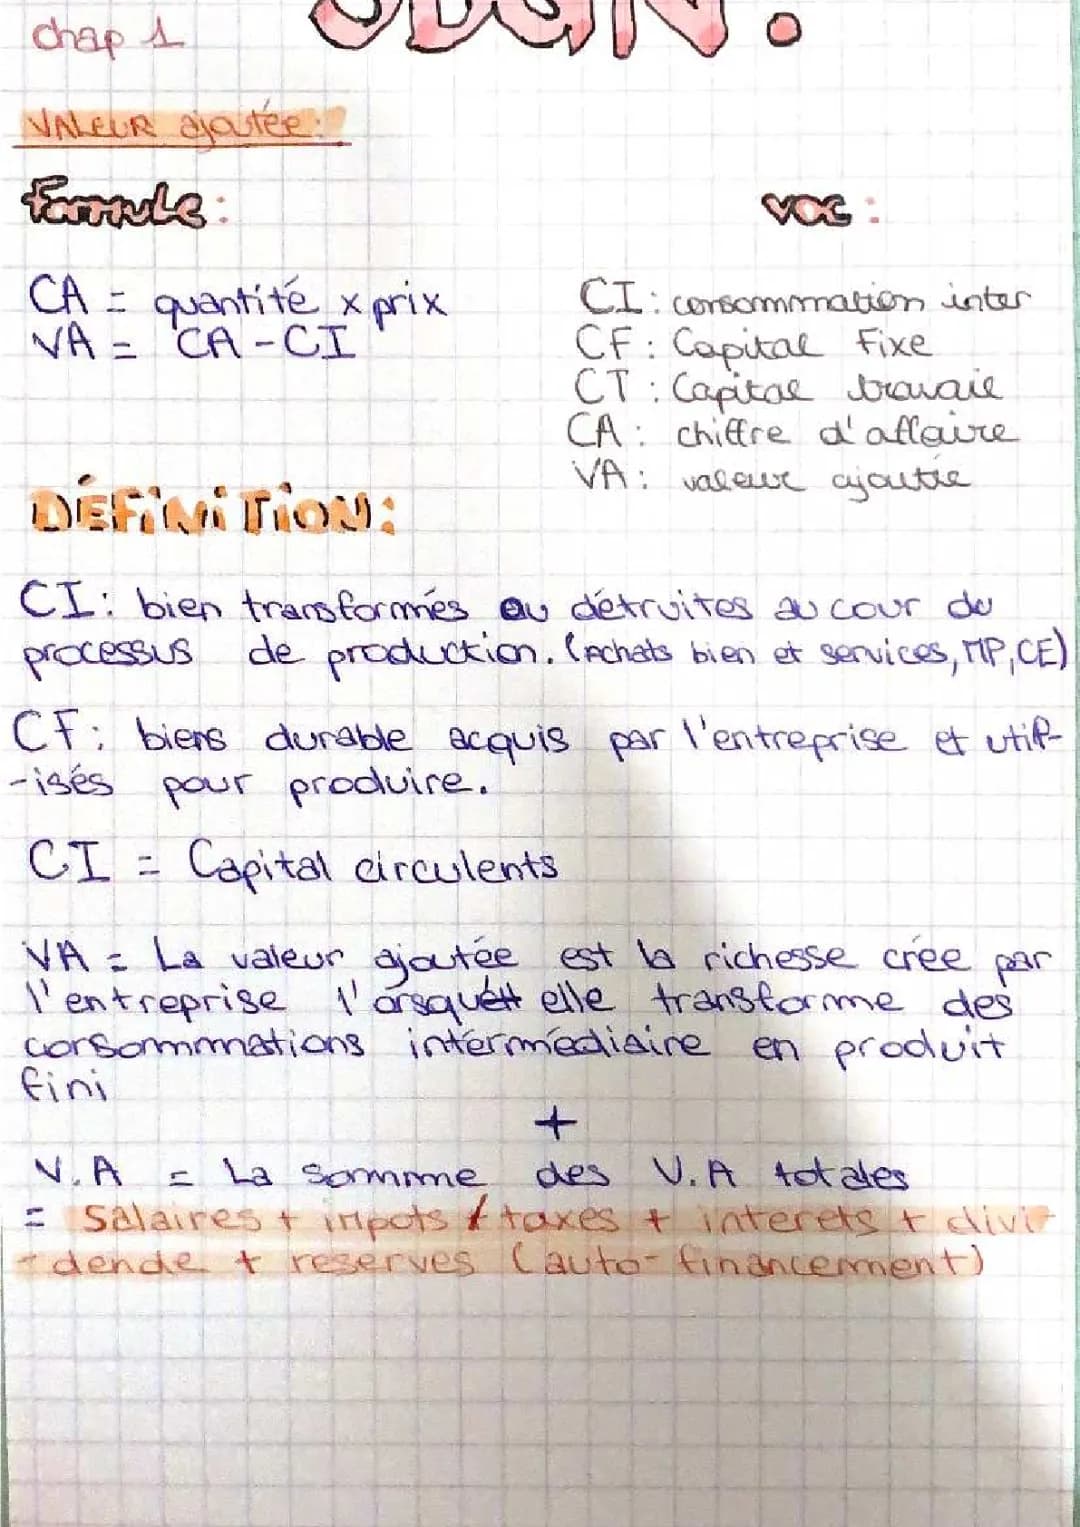 chap 1
SDGN :
VALEUR ajoutée :
formule :
voc :
CA = quantité x prix
VA = CA - CI
CI : consommation inter
CF : Capital Fixe
CT : Capital travail
CA : chiffre d'affaire
VA : valeur ajoutée
DÉFiNiTiON :
CI : bien transformés ou détruites au cour du
processus de production. (Achats bien et services, MP, CE)
CF : biens durable acquis par l'entreprise et util-
-isés pour produire.
CI = Capital circulents
VA = La valeur ajoutée est la richesse crée par
l'entreprise l'orsqu'elle transforme des
consommations intermédiaire en produit
fini
+
V.A = La somme des V.A totales
= Salaires + impots / taxes + interets + divi-
- dende + reserves (auto-financement)